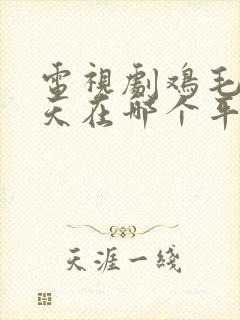 電視劇鸡毛
天在哪个平
天涯一綫